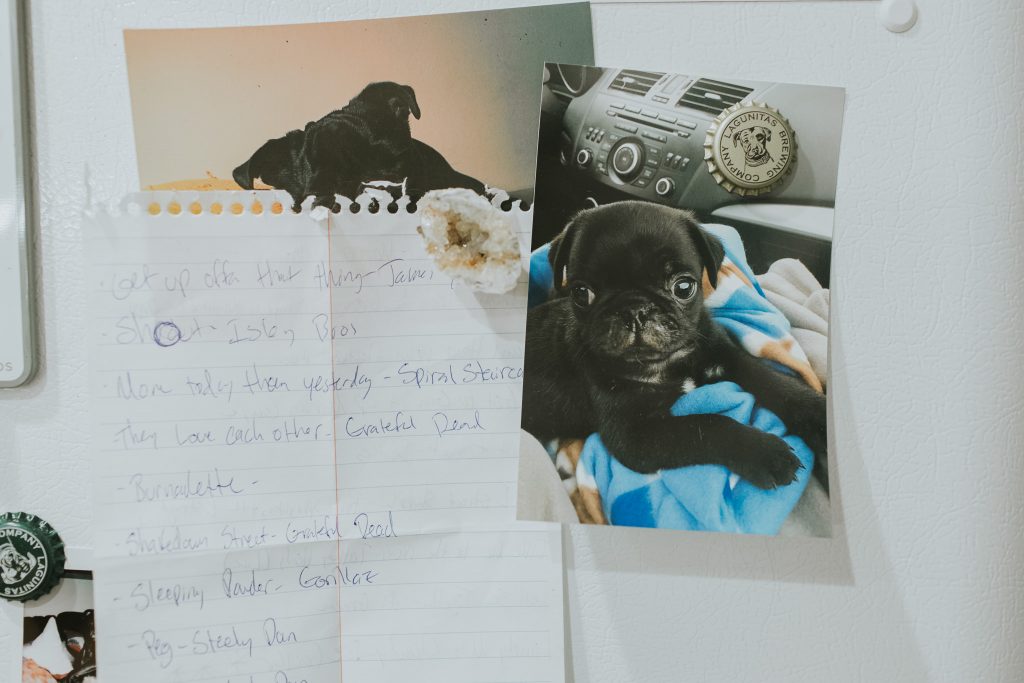 - Get up offa that thing - Jame
- Shout - Isley Bros
More today than yesterday - Spiral Stairca
They Love each other - Grateful Dead
- Burnadette -
- Shakedown Street - Grateful Dead
- Sleeping Powder - Gorillaz
- Peg - Steely Dan
Dan
LAGUNITAS BREWING COMPANY
COMPANY LAGUNITAS